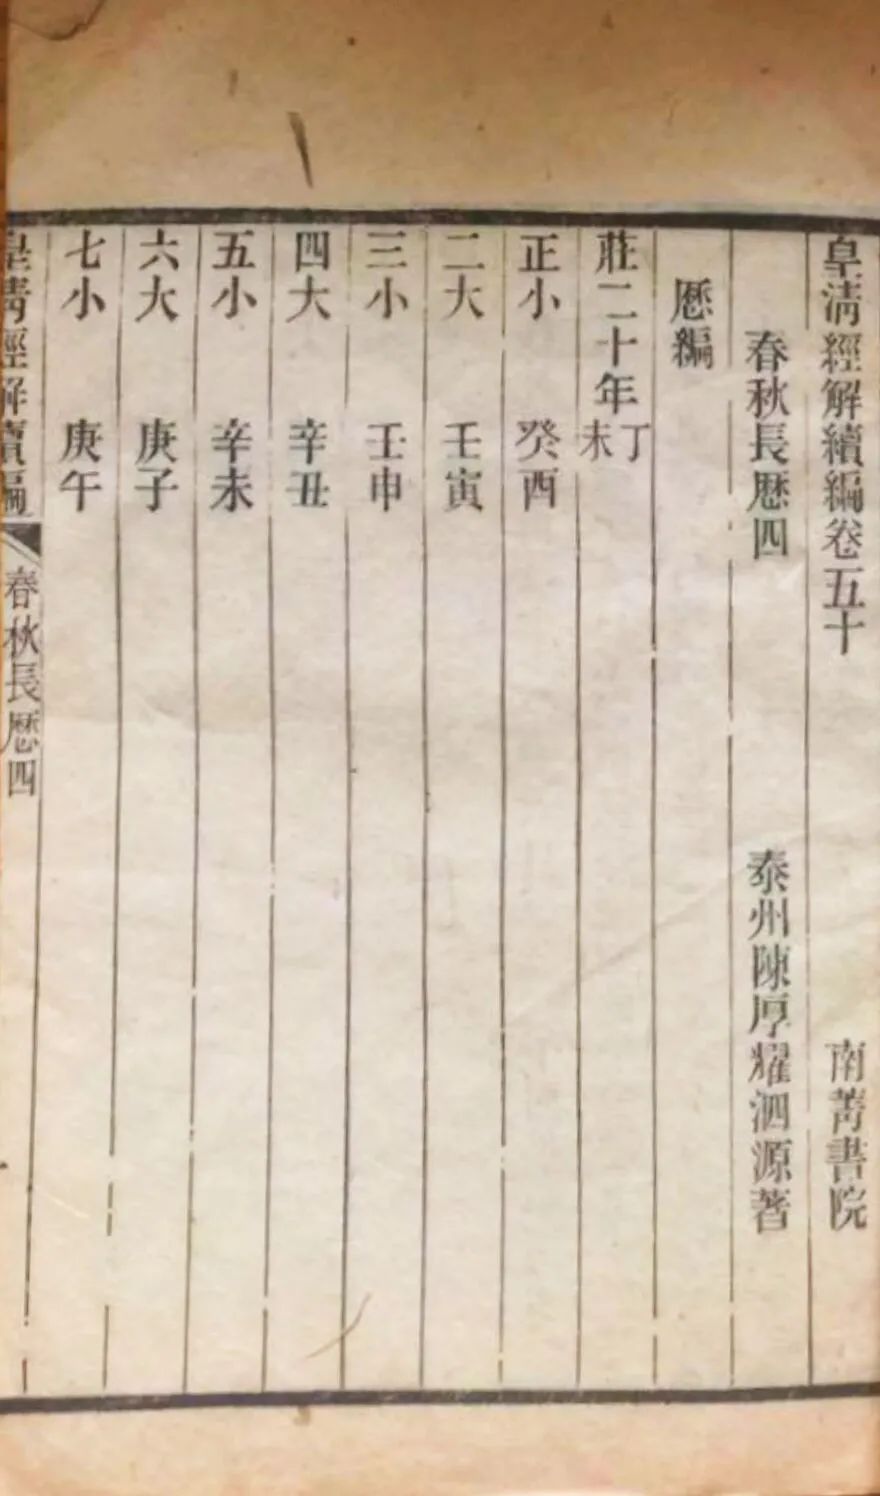 皇清經解續編卷五十　南菁書院
春秋長厯四　泰州陳厚耀泗源著
厯編
莊二十年丁未
正小　癸酉
二大　壬寅
三小　壬申
四大　辛丑
五小　辛未
六大　庚子
七小　庚午
皇清經解續編　春秋長厯四